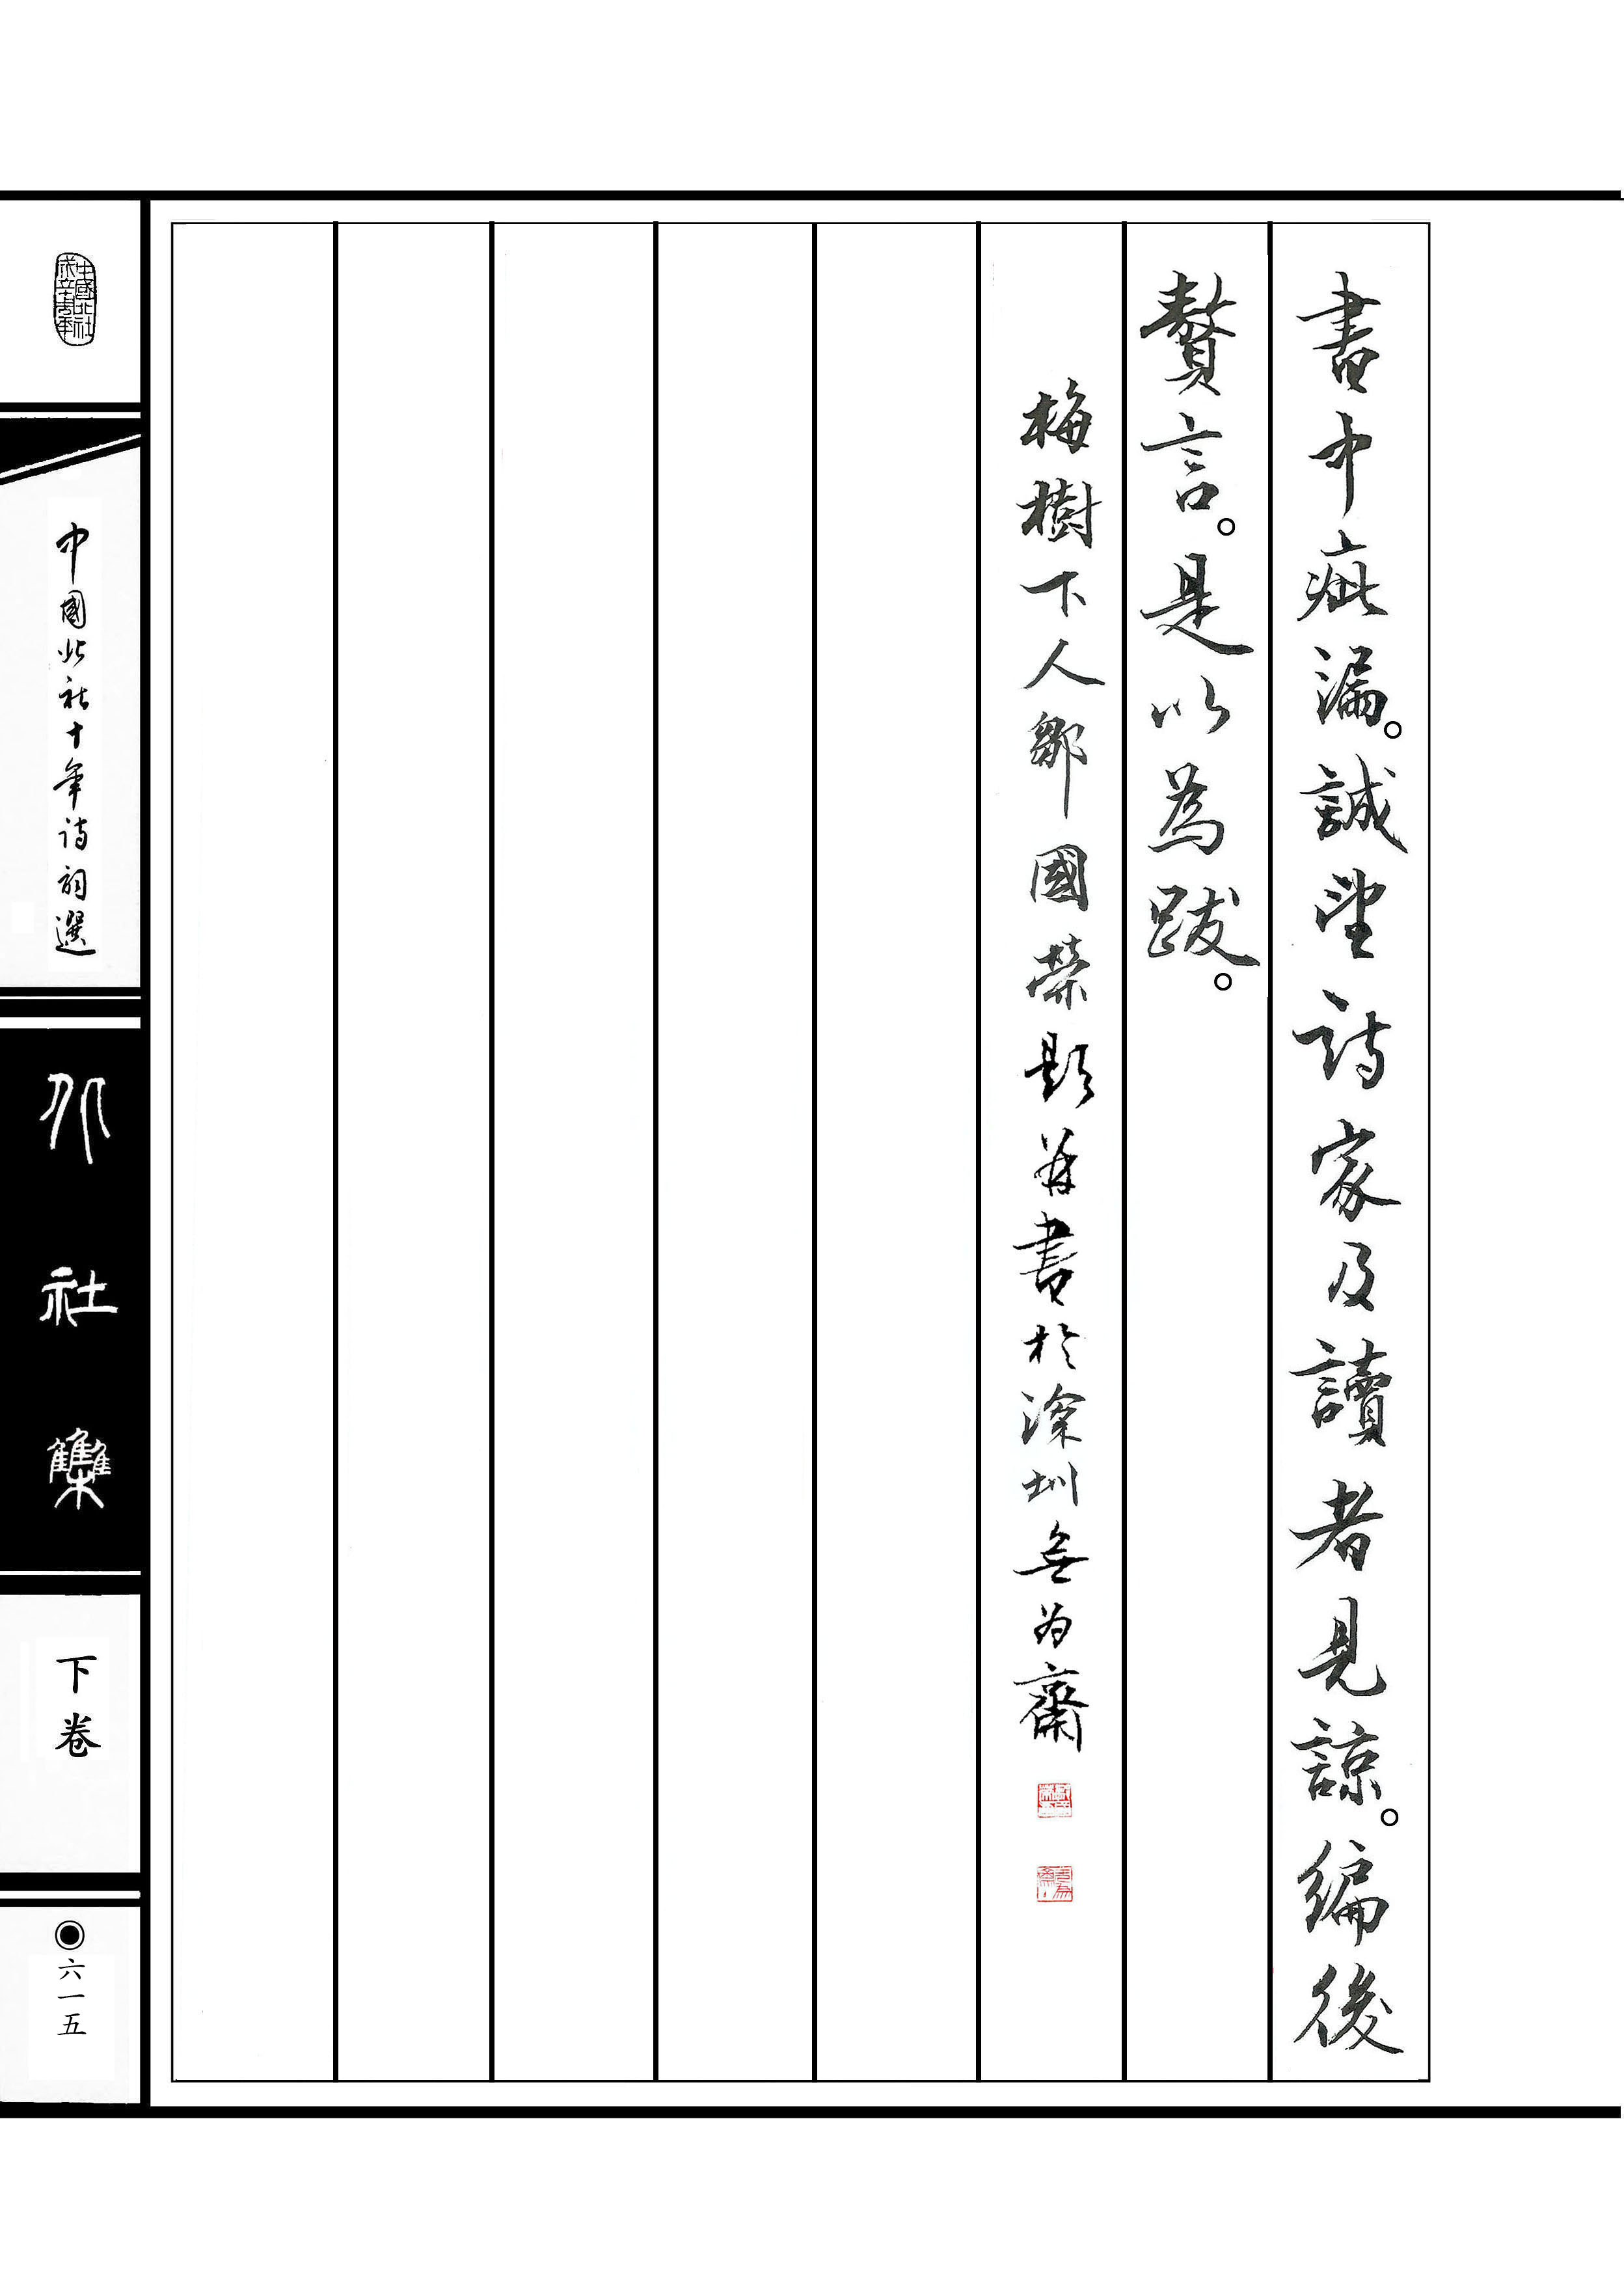 書中疵漏。誠望詩家及讀者見諒。編後
贅言。是以為跋。
梅樹下人鄒國榮題並書於深圳無為齋
中國北社成立十周年
中國北社十年诗詞選
北社集
下卷
六一五